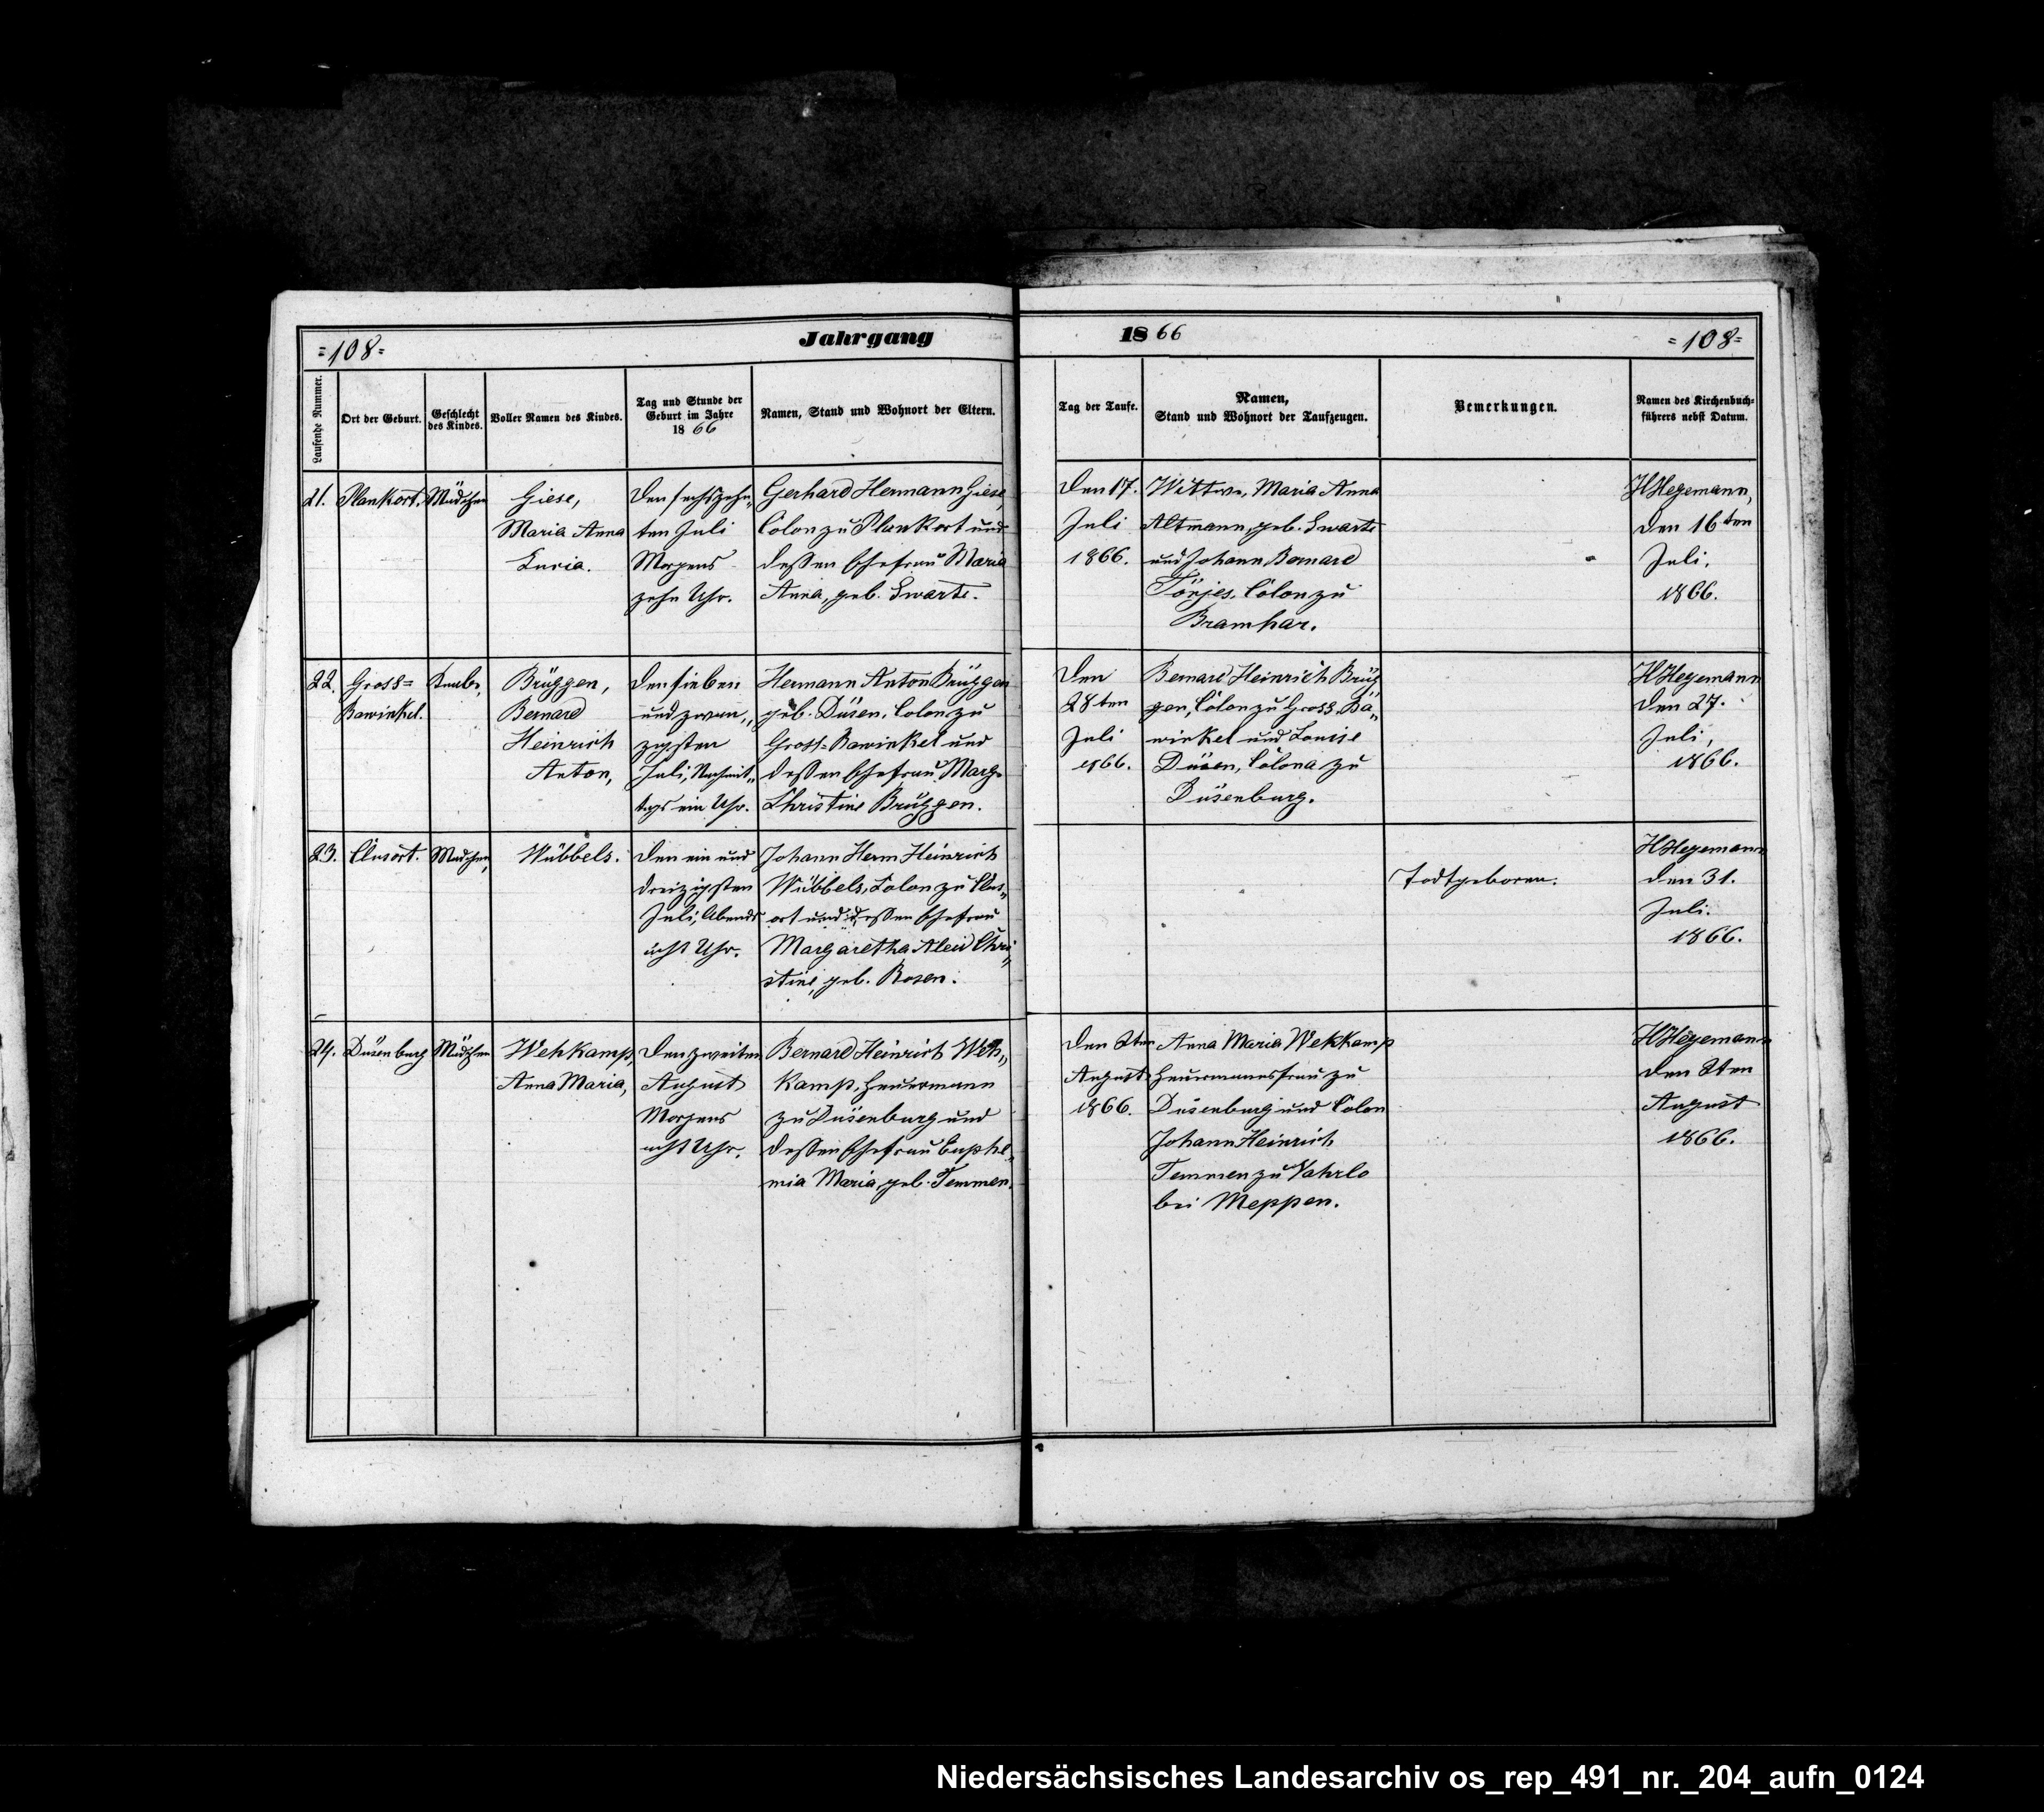 Jahrgang 1866
=108=
=108=
Laufende Nummer.
Ort der Geburt.
Geschlecht
des Kindes.
Voller Namen des Kindes.
Tag und Stunde der
Geburt im Jahre
1866
Namen, Stand und Wohnort der Eltern.
Tag der Taufe.
Namen,
Stand und Wohnort der Taufzeugen.
Bemerkungen.
Namen des Kirchenbuch-
führers nebst Datum.
21.
Plankort.
Mädchen
Giese,
Maria Anna
Lucia.
Den sechszehn„
ten Juli
Morgens
zehn Uhr.
Gerhard Hermann Giese,
Colon zu Plankort und
dessen Ehefrau Maria
Anna, geb. Swarte.
Den 17.
Juli
1866.
Wittwe, Maria Anna
Altmann, geb. Swarte
und Johann Bernard
Tönjes, Colon zu
Bramhar.
HHegemann,
den 16ten
Juli,
1866.
22.
Gross=
Bawinkel.
Knabe,
Brüggen,
Bernard
Heinrich
Anton,
Den sieben
und zwan„
zigsten
Juli, Nachmit„
tags ein Uhr.
Hermann Anton Brüggen
geb. Düsen, Colon zu
Gross=Bawinkel und
dessen Ehefrau Marg.
Christine Brüggen.
Den
28ten
Juli
1866.
Bernard Heinrich Brüg
gen, Colon zu Gross Ba„
winkel und Louise
Düsen, Colona zu
Düsenburg.
HHegemann
den 27.
Juli,
1866.
23.
Clusort.
Mädchen,
Wübbels.
Den ein und
dreizigsten
Juli, Abends
acht Uhr.
Johann Herm Heinrich
Wübbels, Colon zu Clus„
ort und dessen Ehefrau
Margaretha Aleid Chri„
stine, geb. Rosen.
Todtgeboren.
HHegemann
den 31.
Juli.
1866.
24.
Düsenburg
Mädchen
Wehkamp,
Anna Maria,
Den zweiten
August
Morgens
acht Uhr.
Bernard Heinrich Weh„
kamp, Heuermann
zu Düsenburg und
dessen Ehefrau Euphe„
mia Maria, geb. Temmen.
Den 2ten
August
1866.
Anna Maria Wehkamp
Heuermannsfrau zu
Düsenburg und Colon
Johann Heinrich
Temmen zu Vahrlo
bei Meppen.
HHegemann
den 2ten
August
1866.
Niedersächsisches Landesarchiv os_rep_491_nr._204_aufn_0124